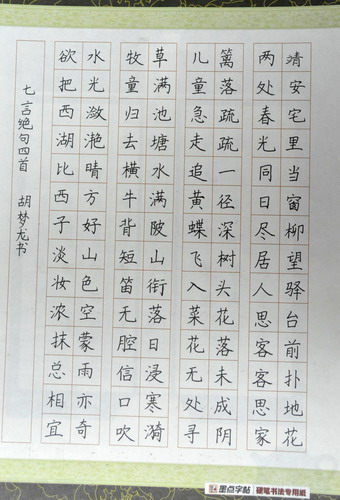 靖安宅里当窗柳望驿台前扑地花
两处春光同日尽居人思客客思家
篱落疏疏一径深树头花落未成阴
儿童急走追黄蝶飞入菜花无处寻
草满池塘水满陂山衔落日浸寒漪
牧童归去横牛背短笛无腔信口吹
水光潋滟晴方好山色空蒙雨亦奇
欲把西湖比西子淡妆浓抹总相宜
七言绝句四首 胡梦龙书
墨点字帖 硬笔书法专用纸